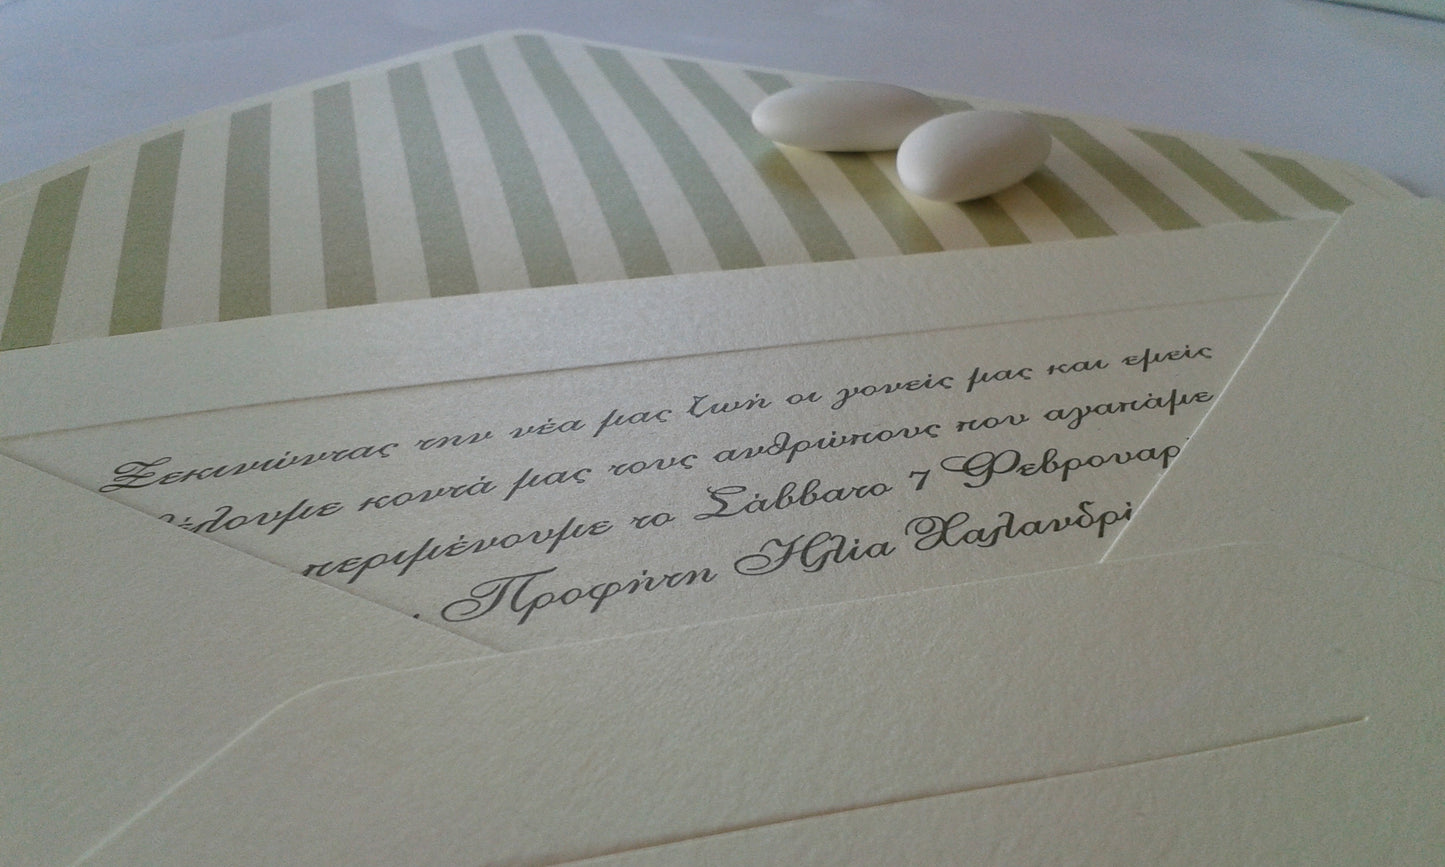 Ξεκινώντας την νέα μας ζωή οι γονείς μας και εμείς
θέλουμε κοντά μας τους ανθρώπους που αγαπάμε
περιμένουμε το Σάββατο 7 Φεβρουαρ
Προφήτη Ηλία Χαλανδρί